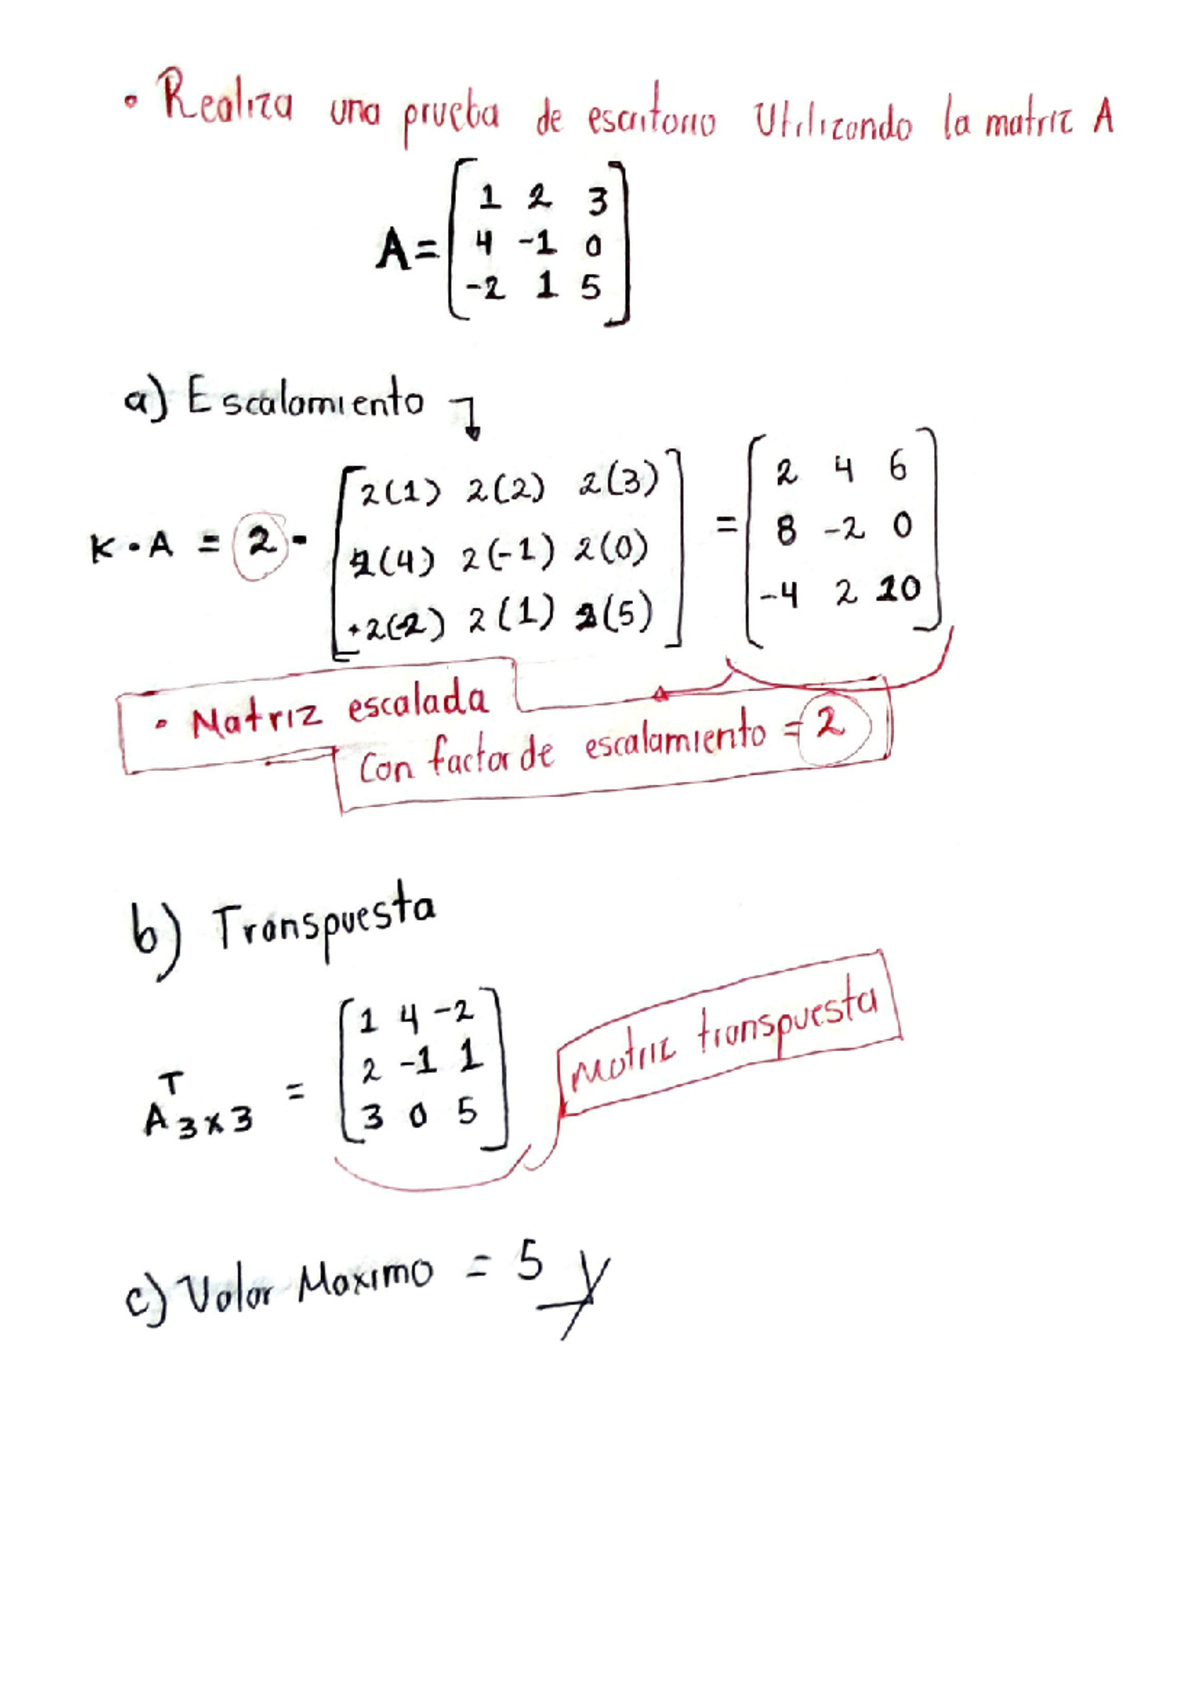 • Realiza una prueba de escritorio Utilizando la matriz A
A= [1 2 3
4 -1 0
-2 1 5]
a) Escalamiento ↴
K • A = 2 • [2(1) 2(2) 2(3)
2(4) 2(-1) 2(0)
+2(-2) 2(1) 2(5)] = [2 4 6
8 -2 0
-4 2 10]
• Matriz escalada
Con factor de escalamiento = 2
b) Transpuesta
A^T 3x3 = [1 4 -2
2 -1 1
3 0 5]
Matriz transpuesta
c) Valor Maximo = 5